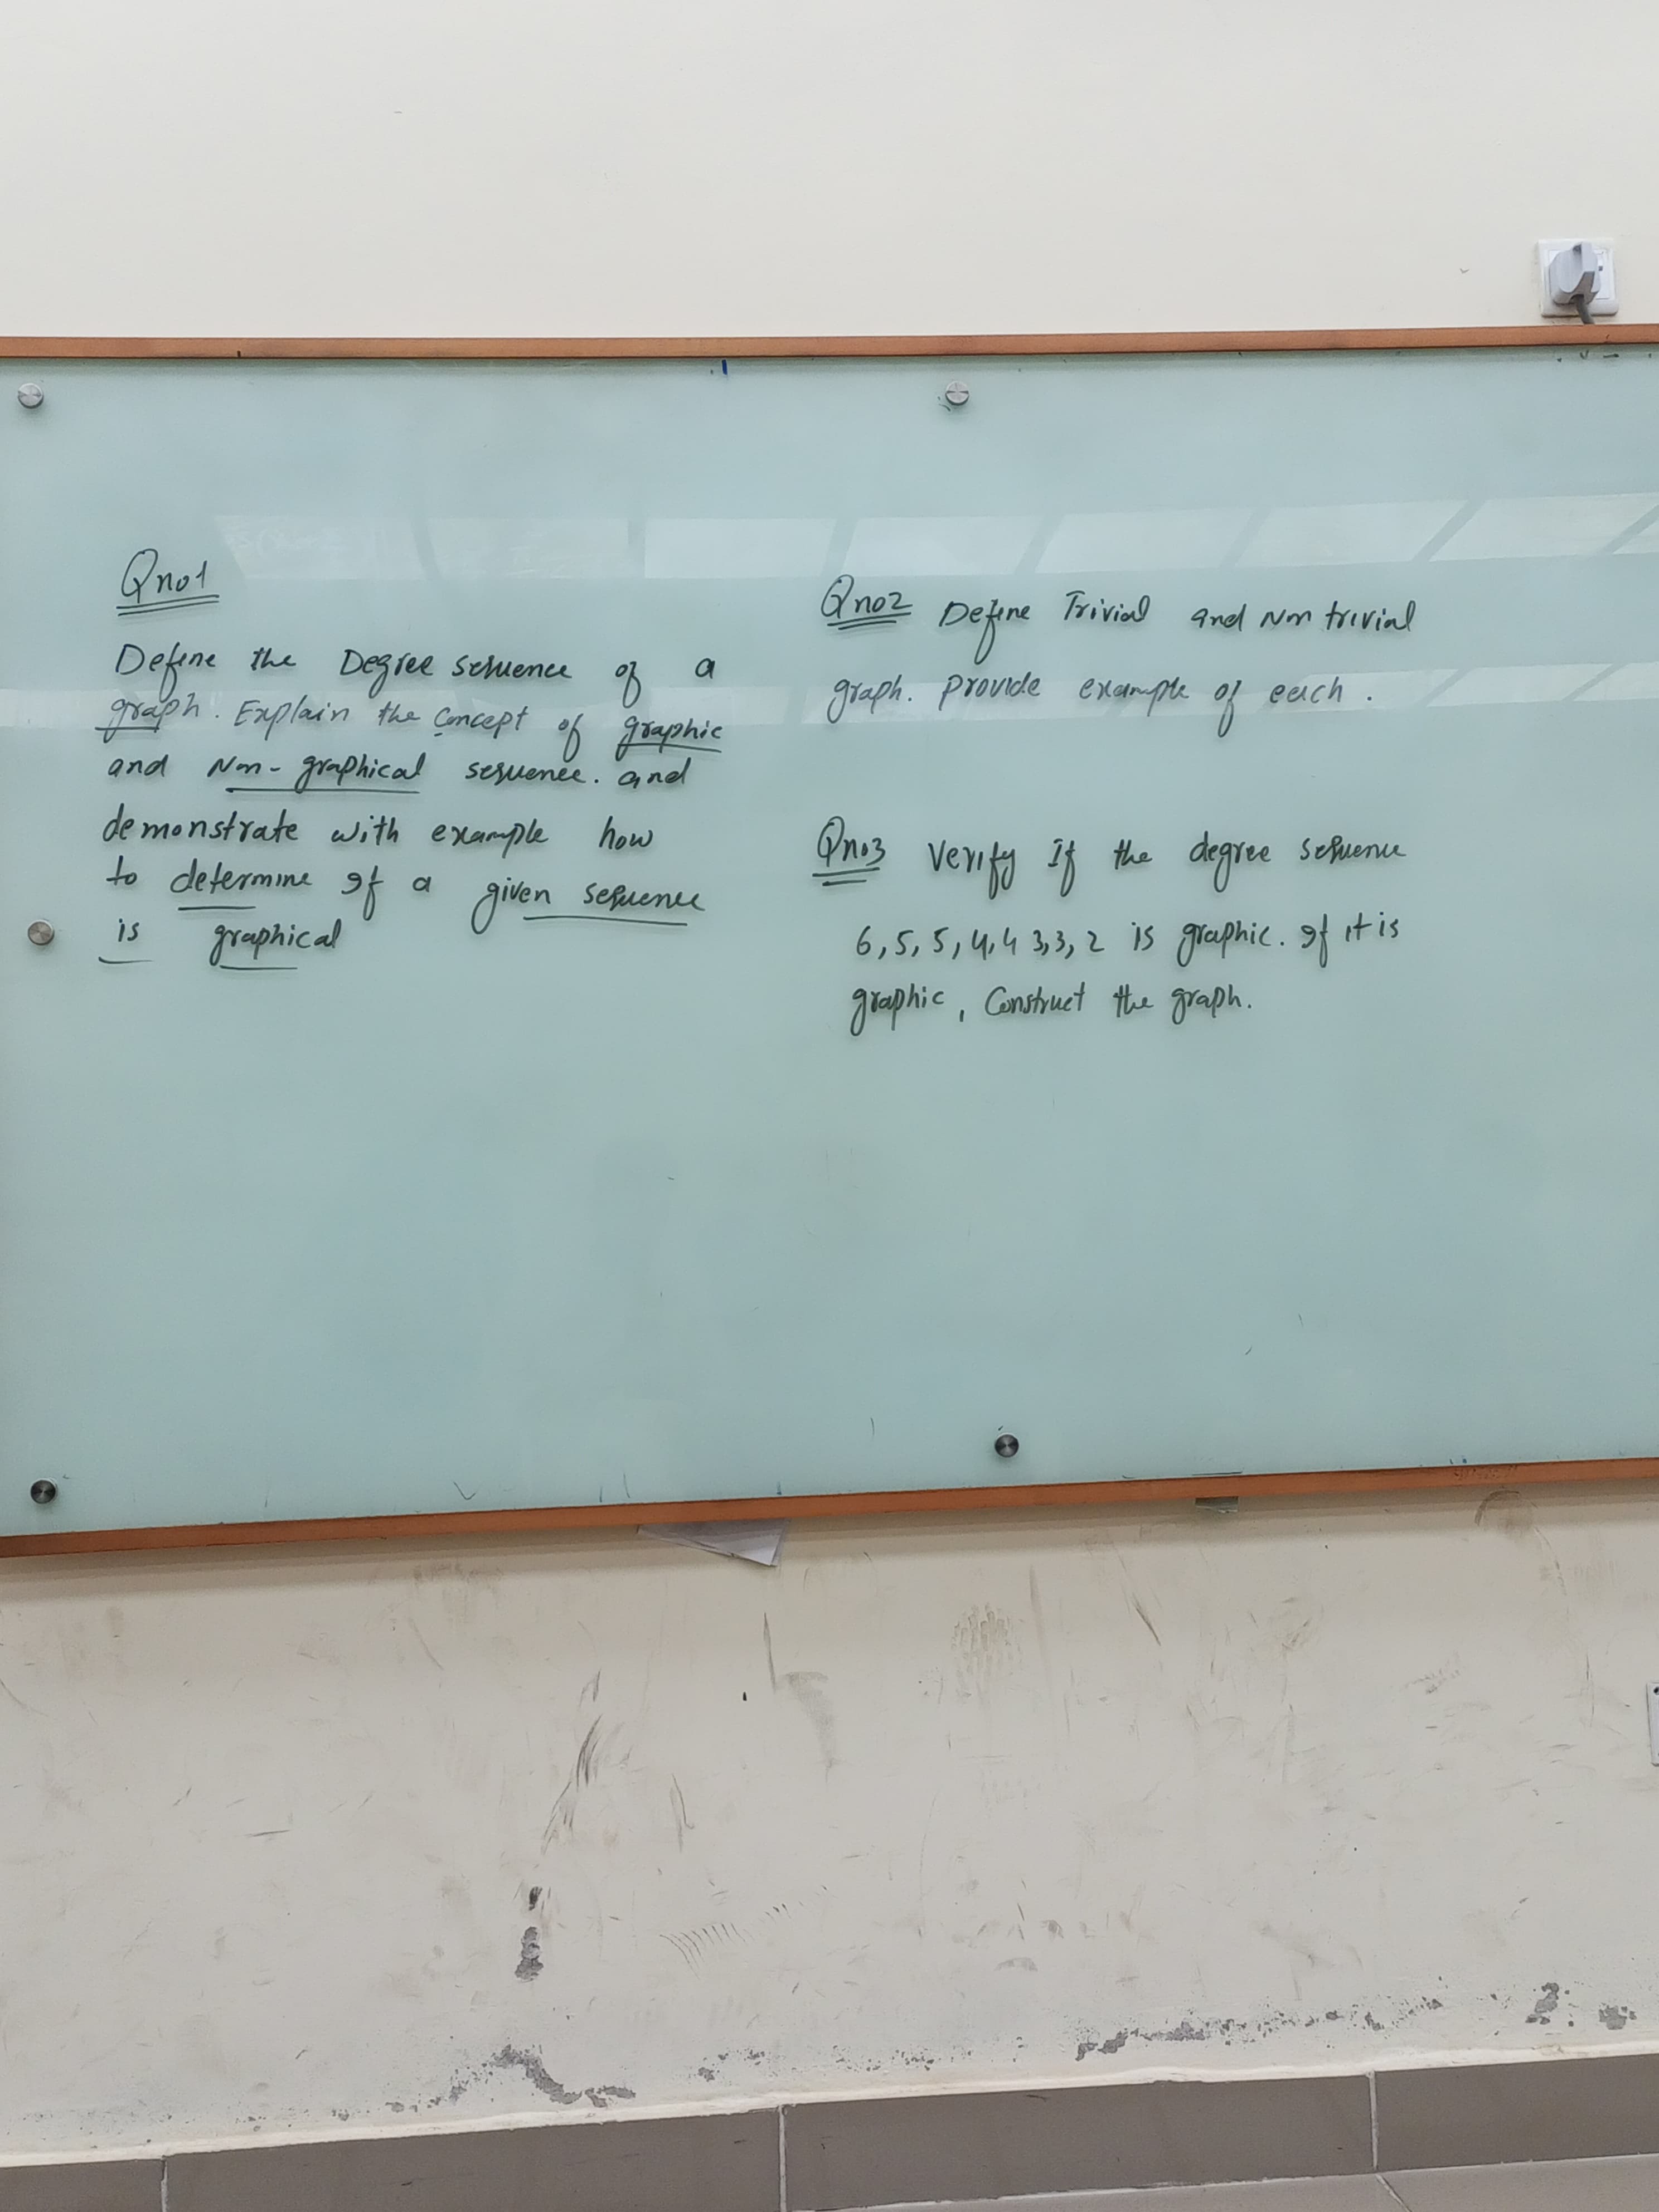 Qno1
Define the Degree sequence of a
graph. Explain the concept of graphic
and Non-graphical sequence. and
demonstrate with example how
to determine If a given sequence
is graphical
Qno2 Define Trivial and Non trivial
graph. provide example of each.
Qno3 Verify If the degree sequence
6, 5, 5, 4, 4 3, 3, 2 is graphic. If it is
graphic, Construct the graph.